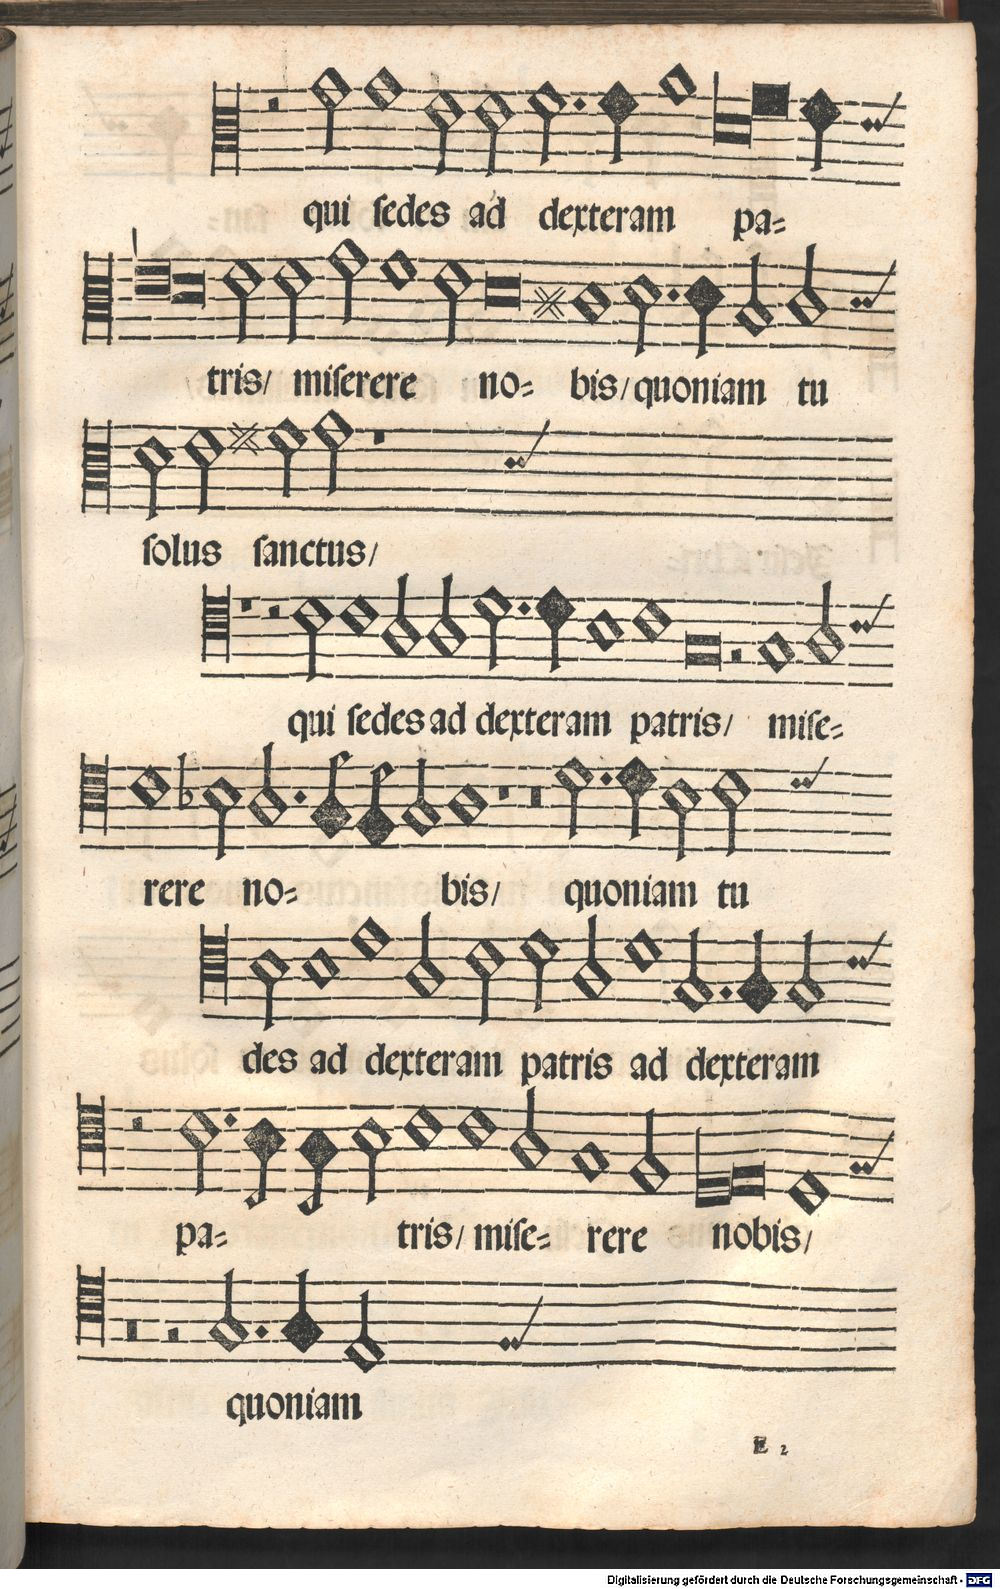 qui ſedes ad dexteram pa-
tris/ miſerere no- bis/ quoniam tu
ſolus ſanctus/
qui ſedes ad dexteram patris/ miſe-
rere no- bis/ quoniam tu
des ad dexteram patris ad dexteram
pa- tris/ miſe- rere nobis/
quoniam
E 2
Digitalisierung gefördert durch die Deutsche Forschungsgemeinschaft - DFG